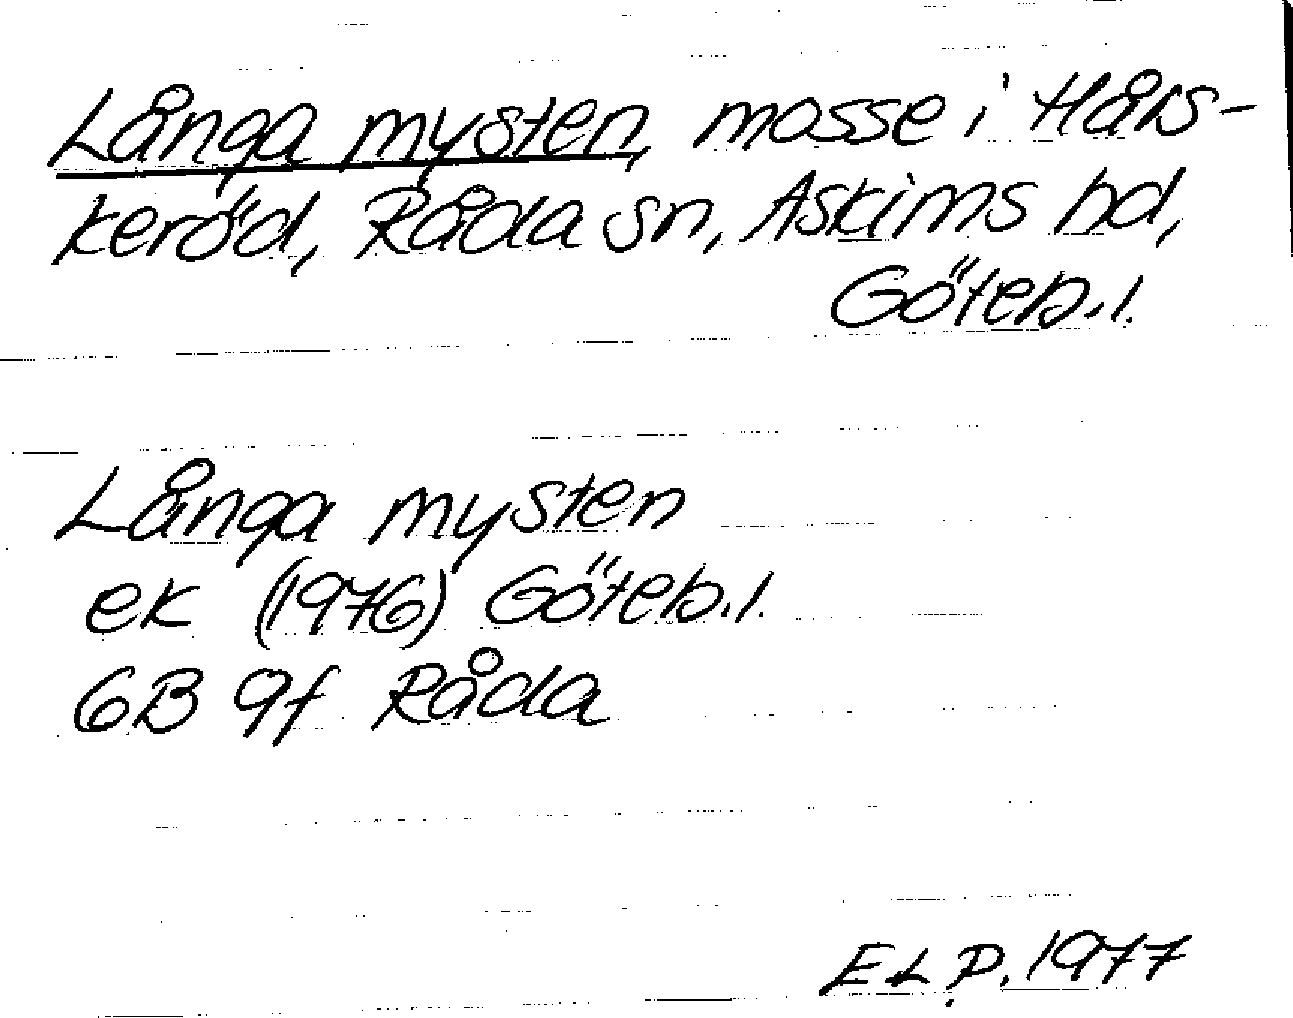 Långa mysten, mosse i Hårs-
keröd, Råda sn, Askims hd,
Göteb.l.
Långa mysten
ek (1976) Göteb.l.
6B 9f Råda
ELP. 1977